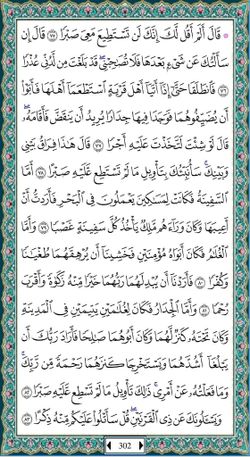 ۞ قَالَ أَلَمْ أَقُل لَّكَ إِنَّكَ لَن تَسْتَطِيعَ مَعِىَ صَبْرًا ٧٥ قَالَ إِن
سَأَلْتُكَ عَن شَىْءٍۭ بَعْدَهَا فَلَا تُصَٰحِبْنِى ۖ قَدْ بَلَغْتَ مِن لَّدُنِّى عُذْرًا
٧٦ فَٱنطَلَقَا حَتَّىٰٓ إِذَآ أَتَيَآ أَهْلَ قَرْيَةٍ ٱسْتَطْعَمَآ أَهْلَهَا فَأَبَوْا۟
أَن يُضَيِّفُوهُمَا فَوَجَدَا فِيهَا جِدَارًا يُرِيدُ أَن يَنقَضَّ فَأَقَامَهُۥ ۖ
قَالَ لَوْ شِئْتَ لَتَّخَذْتَ عَلَيْهِ أَجْرًا ٧٧ قَالَ هَٰذَا فِرَاقُ بَيْنِى
وَبَيْنِكَ ۚ سَأُنَبِّئُكَ بِتَأْوِيلِ مَا لَمْ تَسْتَطِع عَّلَيْهِ صَبْرًا ٧٨ أَمَّا
ٱلسَّفِينَةُ فَكَانَتْ لِمَسَٰكِينَ يَعْمَلُونَ فِى ٱلْبَحْرِ فَأَرَدتُّ أَنْ
أَعِيبَهَا وَكَانَ وَرَآءَهُم مَّلِكٌ يَأْخُذُ كُلَّ سَفِينَةٍ غَصْبًا ٧٩ وَأَمَّا
ٱلْغُلَٰمُ فَكَانَ أَبَوَاهُ مُؤْمِنَيْنِ فَخَشِينَآ أَن يُرْهِقَهُمَا طُغْيَٰنًا
وَكُفْرًا ٨٠ فَأَرَدْنَآ أَن يُبْدِلَهُمَا رَبُّهُمَا خَيْرًا مِّنْهُ زَكَوٰةً وَأَقْرَبَ
رُحْمًا ٨١ وَأَمَّا ٱلْجِدَارُ فَكَانَ لِغُلَٰمَيْنِ يَتِيمَيْنِ فِى ٱلْمَدِينَةِ
وَكَانَ تَحْتَهُۥ كَنزٌ لَّهُمَا وَكَانَ أَبُوهُمَا صَٰلِحًا فَأَرَادَ رَبُّكَ أَن
يَبْلُغَآ أَشُدَّهُمَا وَيَسْتَخْرِجَا كَنزَهُمَا رَحْمَةً مِّن رَّبِّكَ ۚ
وَمَا فَعَلْتُهُۥ عَنْ أَمْرِى ۚ ذَٰلِكَ تَأْوِيلُ مَا لَمْ تَسْطِع عَّلَيْهِ صَبْرًا ٨٢
وَيَسْـَٔلُونَكَ عَن ذِى ٱلْقَرْنَيْنِ ۖ قُلْ سَأَتْلُوا۟ عَلَيْكُم مِّنْهُ ذِكْرًا ٨٣
302